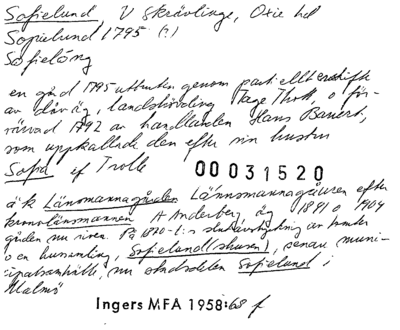 Sofielund, V Skrävlinge, Oxie hd
Sofielund 1795 (?)
Sofieläng
en gård 1795 utbruten genom partiellt enskifte
av dåv äg, landshövding Tage Thott, o för-
värvad 1792 av handlanden Hans Bauert,
som uppkallade den efter sin hustru
Sofia, f Trolle
00031520
ä k Länsmannagården Länsmannagården efter
kronolänsmannen A Anderberg, äg 1891 o 1904
gården nu riven. På 1890-t:s slut avstyckning av tomter
o en hussamling, Sofielund(shusen), senare muni-
cipalsamhälle, nu stadsdelen Sofielund i
Malmö
Ingers MFA 1958:68 f